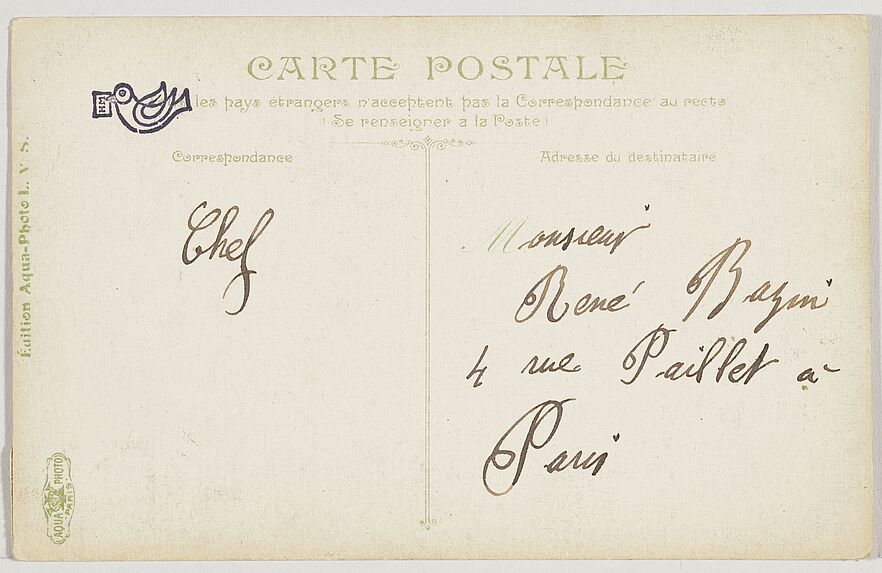 CARTE POSTALE
les pays étrangers n'acceptent pas la Correspondance au recto
(Se renseigner a la Poste)
Correspondance
Adresse du destinataire
HM
Chef
Monsieur
René Bazin
4 rue Paillet à
Paris
Édition Aqua-Photo L. V. S.
AQUA PHOTO
PARIS